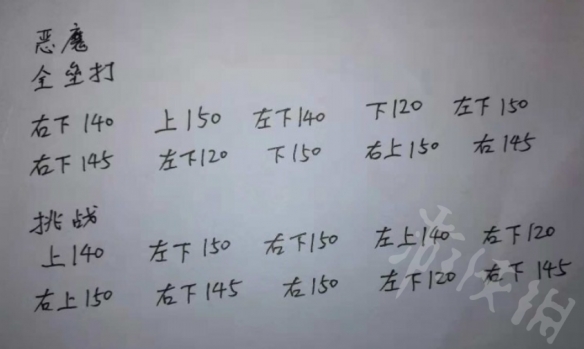 恶魔
全垒打
右下140 上150 左下140 下120 左下150
右下145 左下120 下150 右上150 右145
挑战
上140 左下150 右下150 左上140 右下120
右上150 右下145 右150 左下120 右下145
游侠网